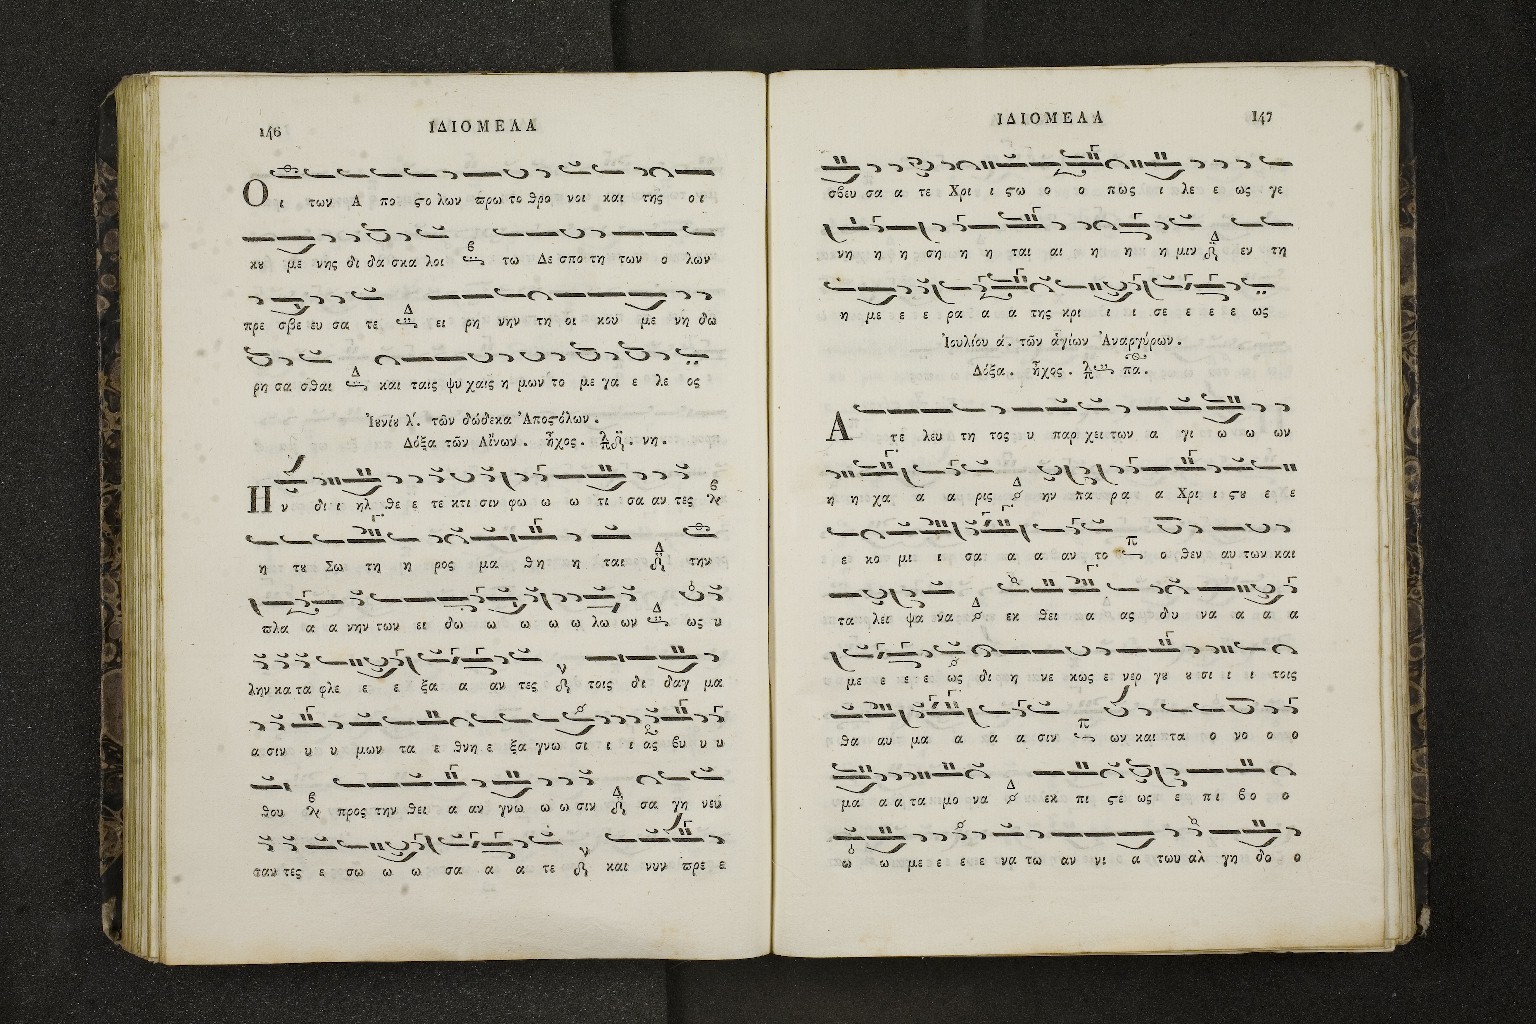 146 ΙΔΙΟΜΕΛΑ
Ο ι των Α πο ϛο λων πρω το θρο νοι και της οι
κȣ με νης δι δα σκα λοι τω Δε σπο τη των ο λων
πρε σβε ευ σα τε ει ρη νην τη οι κου με νη δω
ρη σα σθαι και ταις ψυ χαις η μων το με γα ε λε ος
Ἰȣνίȣ λ΄. τῶν δώδεκα Ἀποϛόλων.
Δόξα τῶν Αἴνων. ἦχος. λ π. νη.
Η ν δι ι ηλ θε ε τε κτι σιν φω ω ω τι σα αν τες
η τȣ Σω τη η ρος μα θη η ται την
πλα α α νην των ει δω ω ω ω ω λω ων ως υ
λην κα τα φλε ε ε ξα α αν τες τοις δι δαγ μα
α σιν υ υ μων τα ε θνη ε ξα γνω σι ι ι ας βυ υ υ
θου προς την θει α αν γνω ω ω σιν σα γη νευ
σαν τες ε σω ω ω σα α α τε και νυν πρε ε
ΙΔΙΟΜΕΛΑ 147
σβευ σα α τε Χρι ι ϛω ο ο πως ι λε ε ως γε
νη η η ση η η ται αι η η η μιν εν τη
η με ε ε ρα α α της κρι ι ι σε ε ε ε ως
Ἰουλίου ά. τῶν ἁγίων Ἀναργύρων.
Δόξα. ἦχος. λ π πα.
Α τε λευ τη τος υ παρ χει των α γι ω ω ων
η η χα α α ρις ην πα ρα α Χρι ι ϛȣ ε ε
ε κο μι ι σα α α αν το ο θεν αυ των και
τα λει ψα να εκ θει α ας δυ να α α α
με ε ε ε ως δι η νε κως ε νερ γȣ ȣ σι ι ι τοις
θα αυ μα α α α σιν ων και τα ο νο ο ο
μα α α τα μο να εκ πι ϛε ως ε πι βο ο
ω ω με ε ε ε να τω αν νι α των αλ γη δο ο